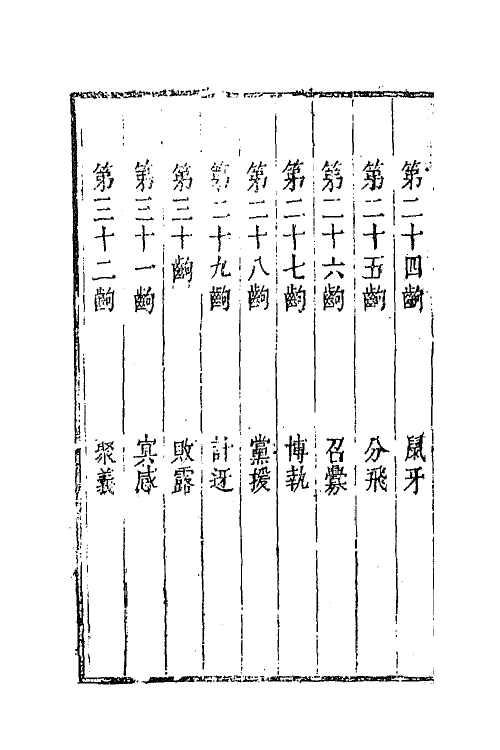 第二十四齣　鼠牙
第二十五齣　分飛
第二十六齣　召釁
第二十七齣　博執
第二十八齣　黨援
第二十九齣　計迓
第三十齣　敗露
第三十一齣　冥感
第三十二齣　聚義